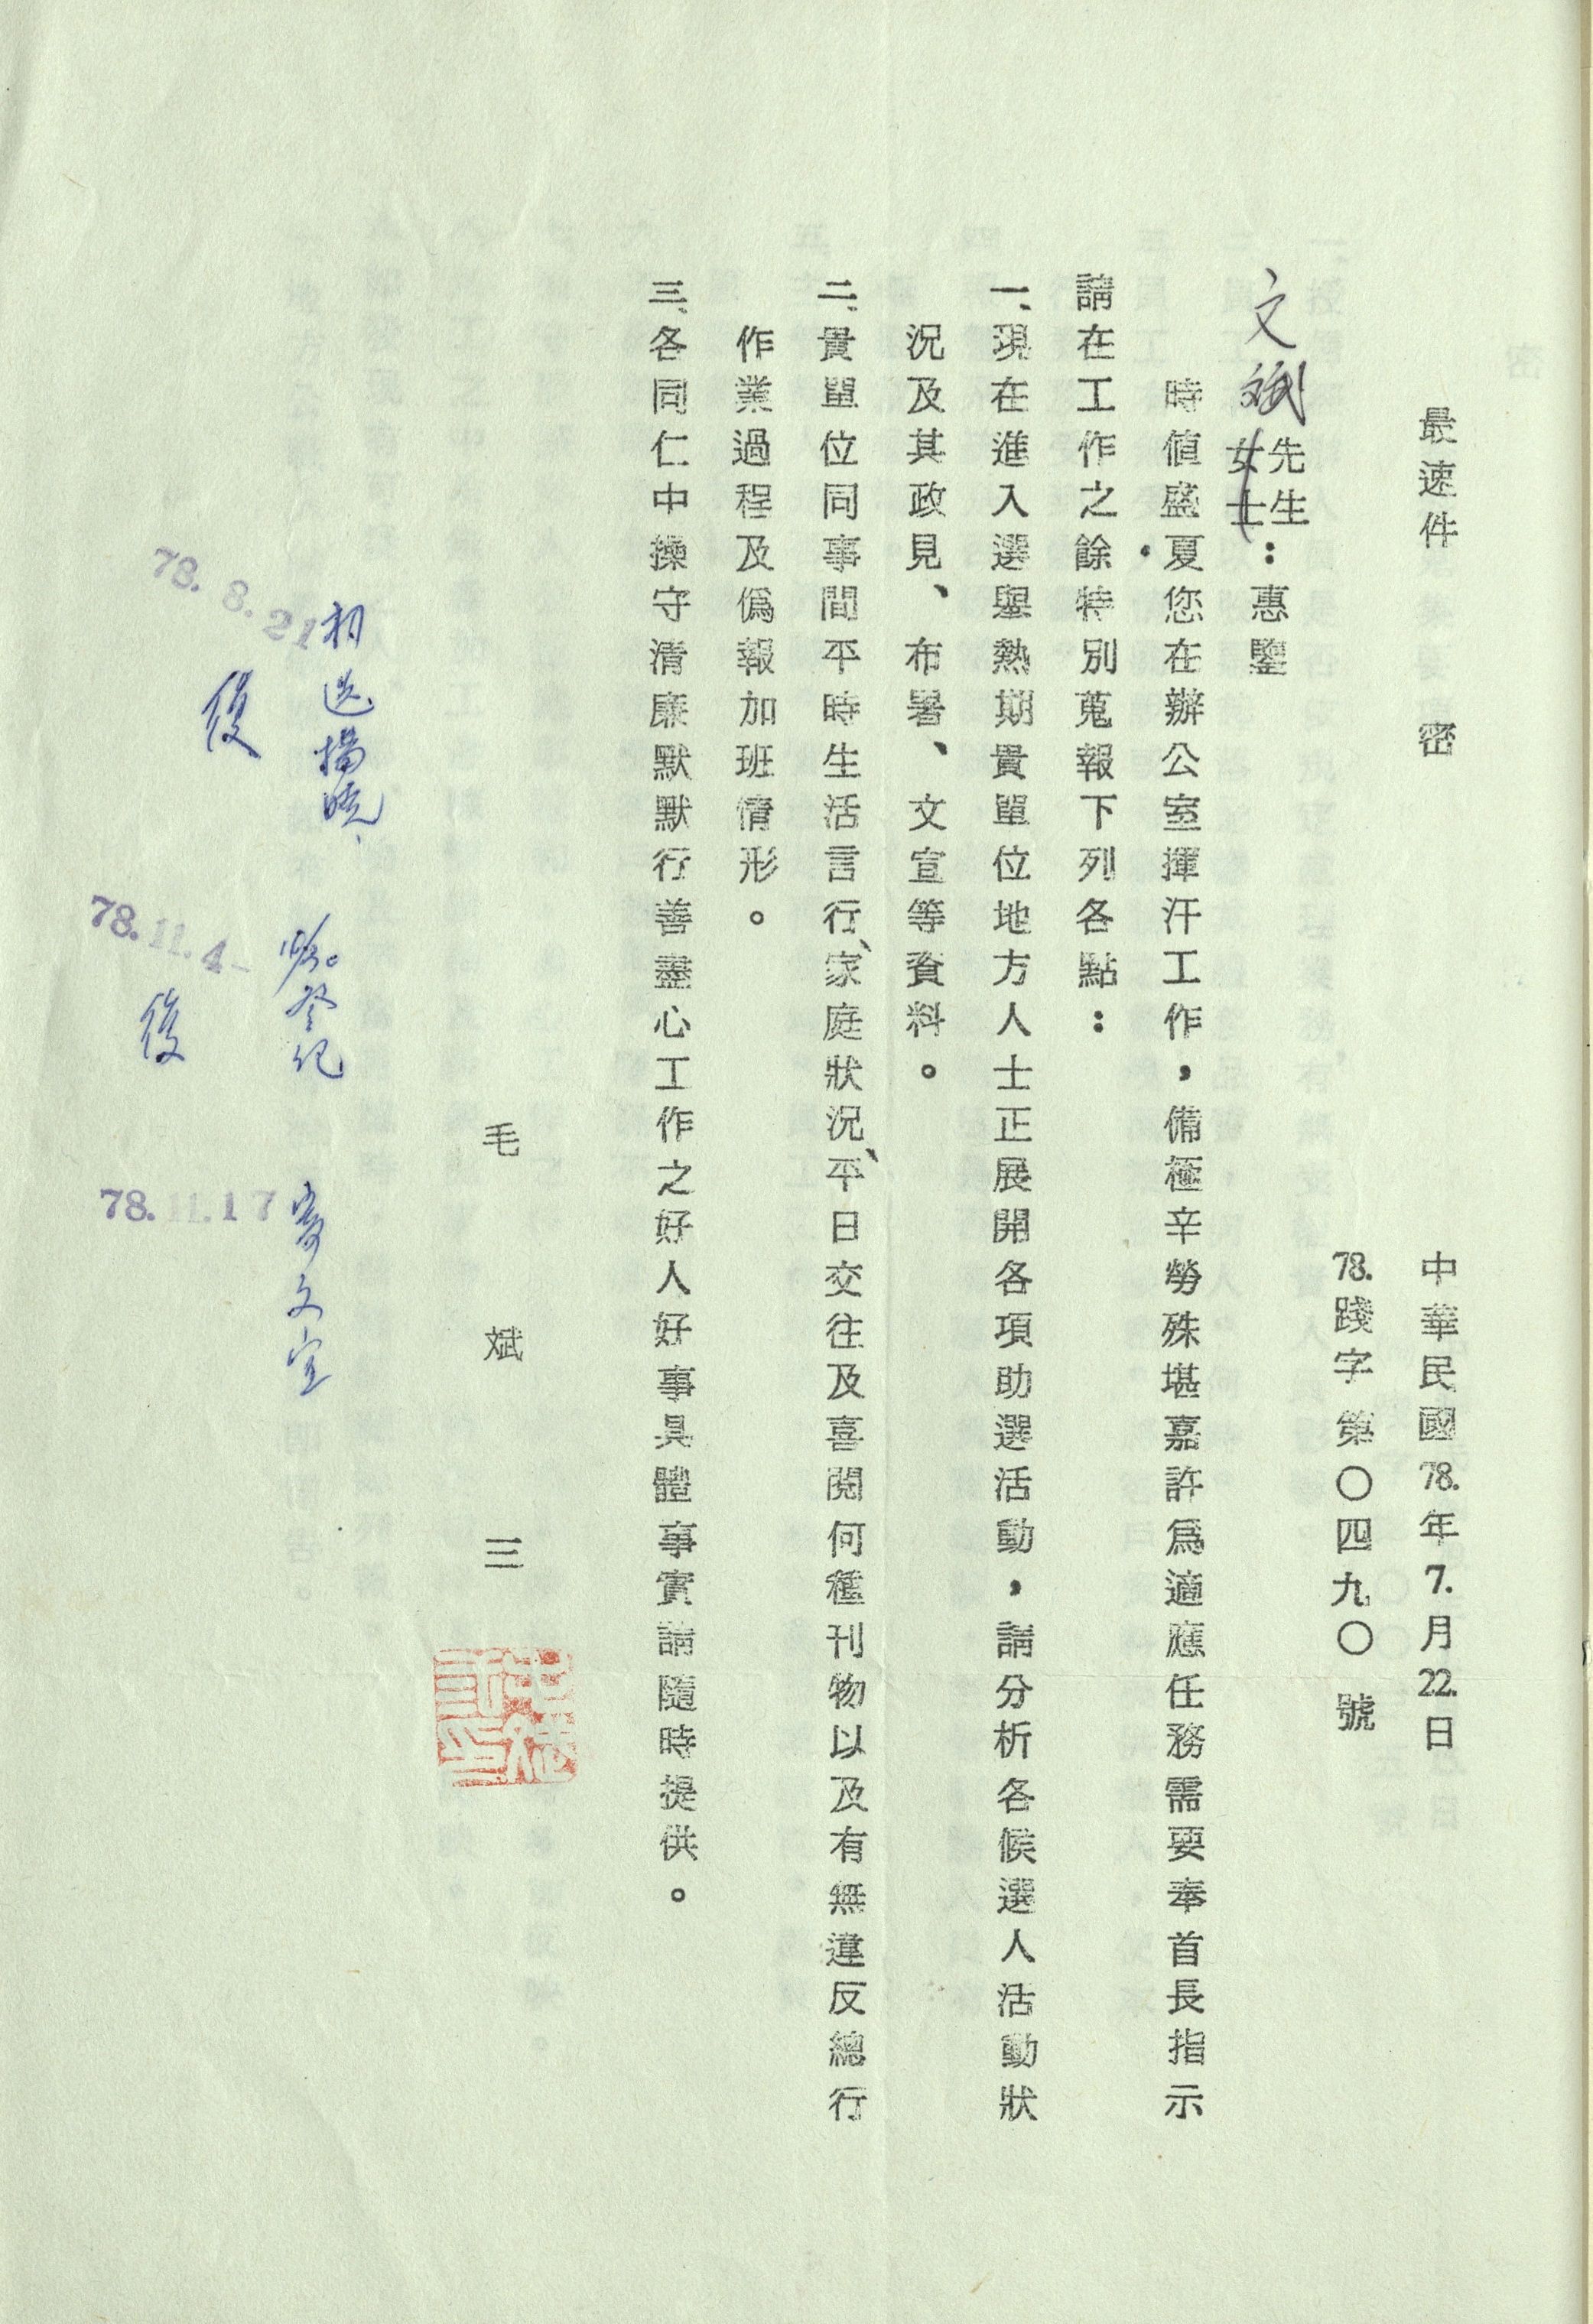 最速件 密 中華民國78.年7.月22.日
78.踐字第〇四九〇號
文斌先生女士：惠鑒
時值盛夏您在辦公室揮汗工作，備極辛勞殊堪嘉許為適應任務需要奉首長指示
請在工作之餘特別蒐報下列各點：
一、現在進入選舉熱期貴單位地方人士正展開各項助選活動，請分析各候選人活動狀
況及其政見、布署、文宣等資料。
二、貴單位同事間平時生活言行、家庭狀況、平日交往及喜閱何種刊物以及有無違反總行
作業過程及偽報加班情形。
三、各同仁中操守清廉默默行善盡心工作之好人好事具體事實請隨時提供。
毛斌三
初選揭曉、 登記 寄文宣
78.8.21 後 78.11.4- 後 78.11.17